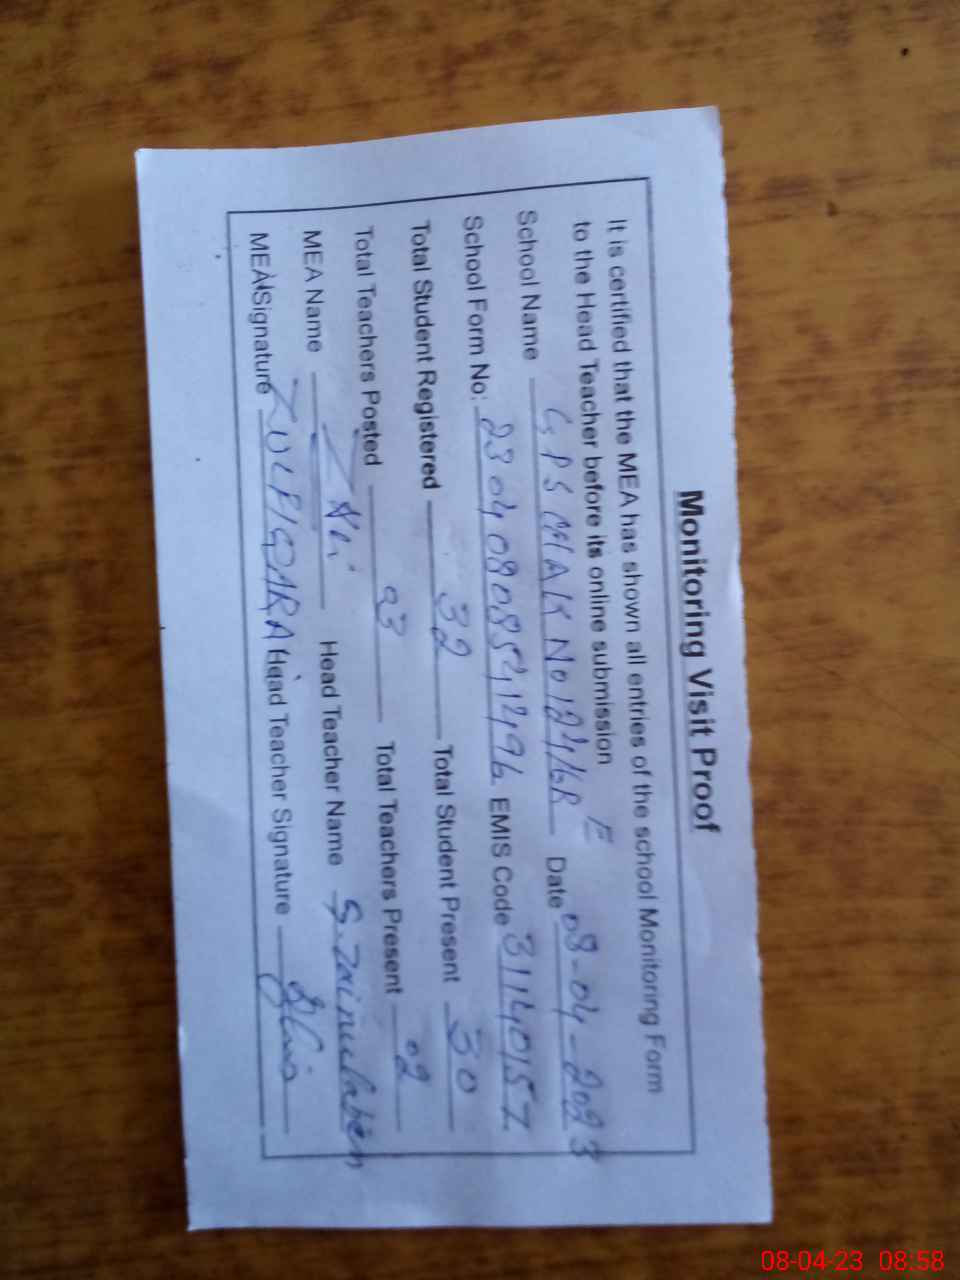 Monitoring Visit Proof
It is certified that the MEA has shown all entries of the school Monitoring Form
to the Head Teacher before its online submission
School Name GPS CHAK NO 124/6R E Date 08-04-2023
School Form No: EMIS Code 31140157
Total Student Registered 32 Total Student Present 30
Total Teachers Posted 03 Total Teachers Present 02
MEA Name Head Teacher Name S. Zainulabeen
MEA Signature ZULFIQAR A Head Teacher Signature
08-04-23 08:58